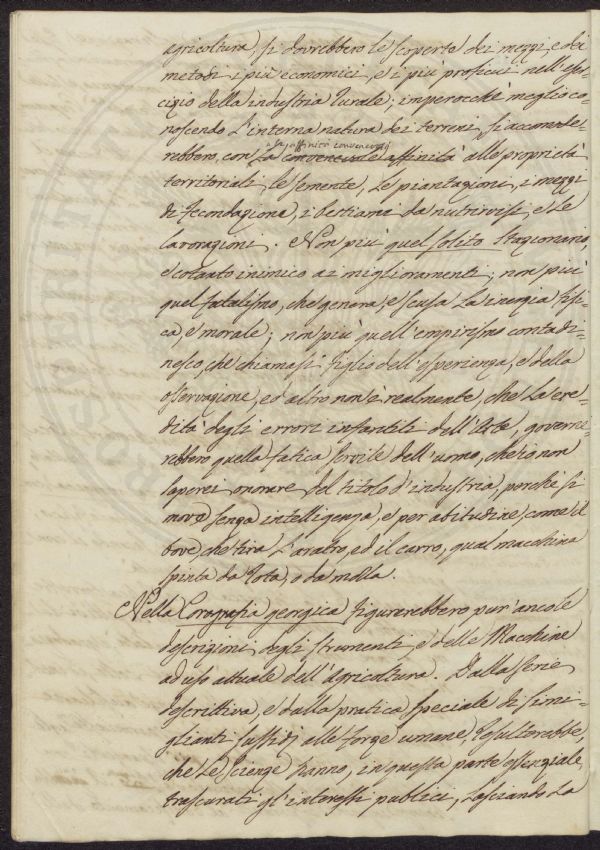 agricoltura, si dovrebbero le scoperte dei mezzi, e dei
metodi i più economici, e i più proficui nell'eser-
cizio della industria rurale; imperocchè meglio co-
noscendo l'interna natura dei terreni, si accomode-
le affinità convenevoli
rebbero, con la convenevole affinità alle proprietà
territoriali, le semente, le piantagioni, i mezzi
di fecondazione, i bestiami da nutrirvisi, e le
lavorazioni. Non più quel solito stazionario,
e cotanto inimico ai miglioramenti; non più
quel fatalismo, che genera, e scusa la inerzia fisi-
ca, e morale; non più quell'empirismo contadi-
nesco, che chiamasi figlio dell'esperienza, e della
osservazione, ed altro non è realmente, che la ere-
dità degli errori infantili dell'Arte, governe-
rebbero quella fatica servile dell'uomo, che io non
saperei onorare del titolo d'industria, perchè si
move senza intelligenza, e per abitudine, come il
bove, che tira l'aratro, ed il carro, qual macchina
spinta da rota, o da molla.
Nella Corografia georgica figurerebbero pur'anco le
descrizioni degli strumenti, e delle Macchine
ad uso attuale dell'Agricoltura. Dalla serie
descrittiva, e dalla pratica speciale di simi-
glianti sussidj alle forze umane, resulterebbe,
che le Scienze hanno, in questa parte essenziale,
trascurati gl'interessi pubblici, lasciando la